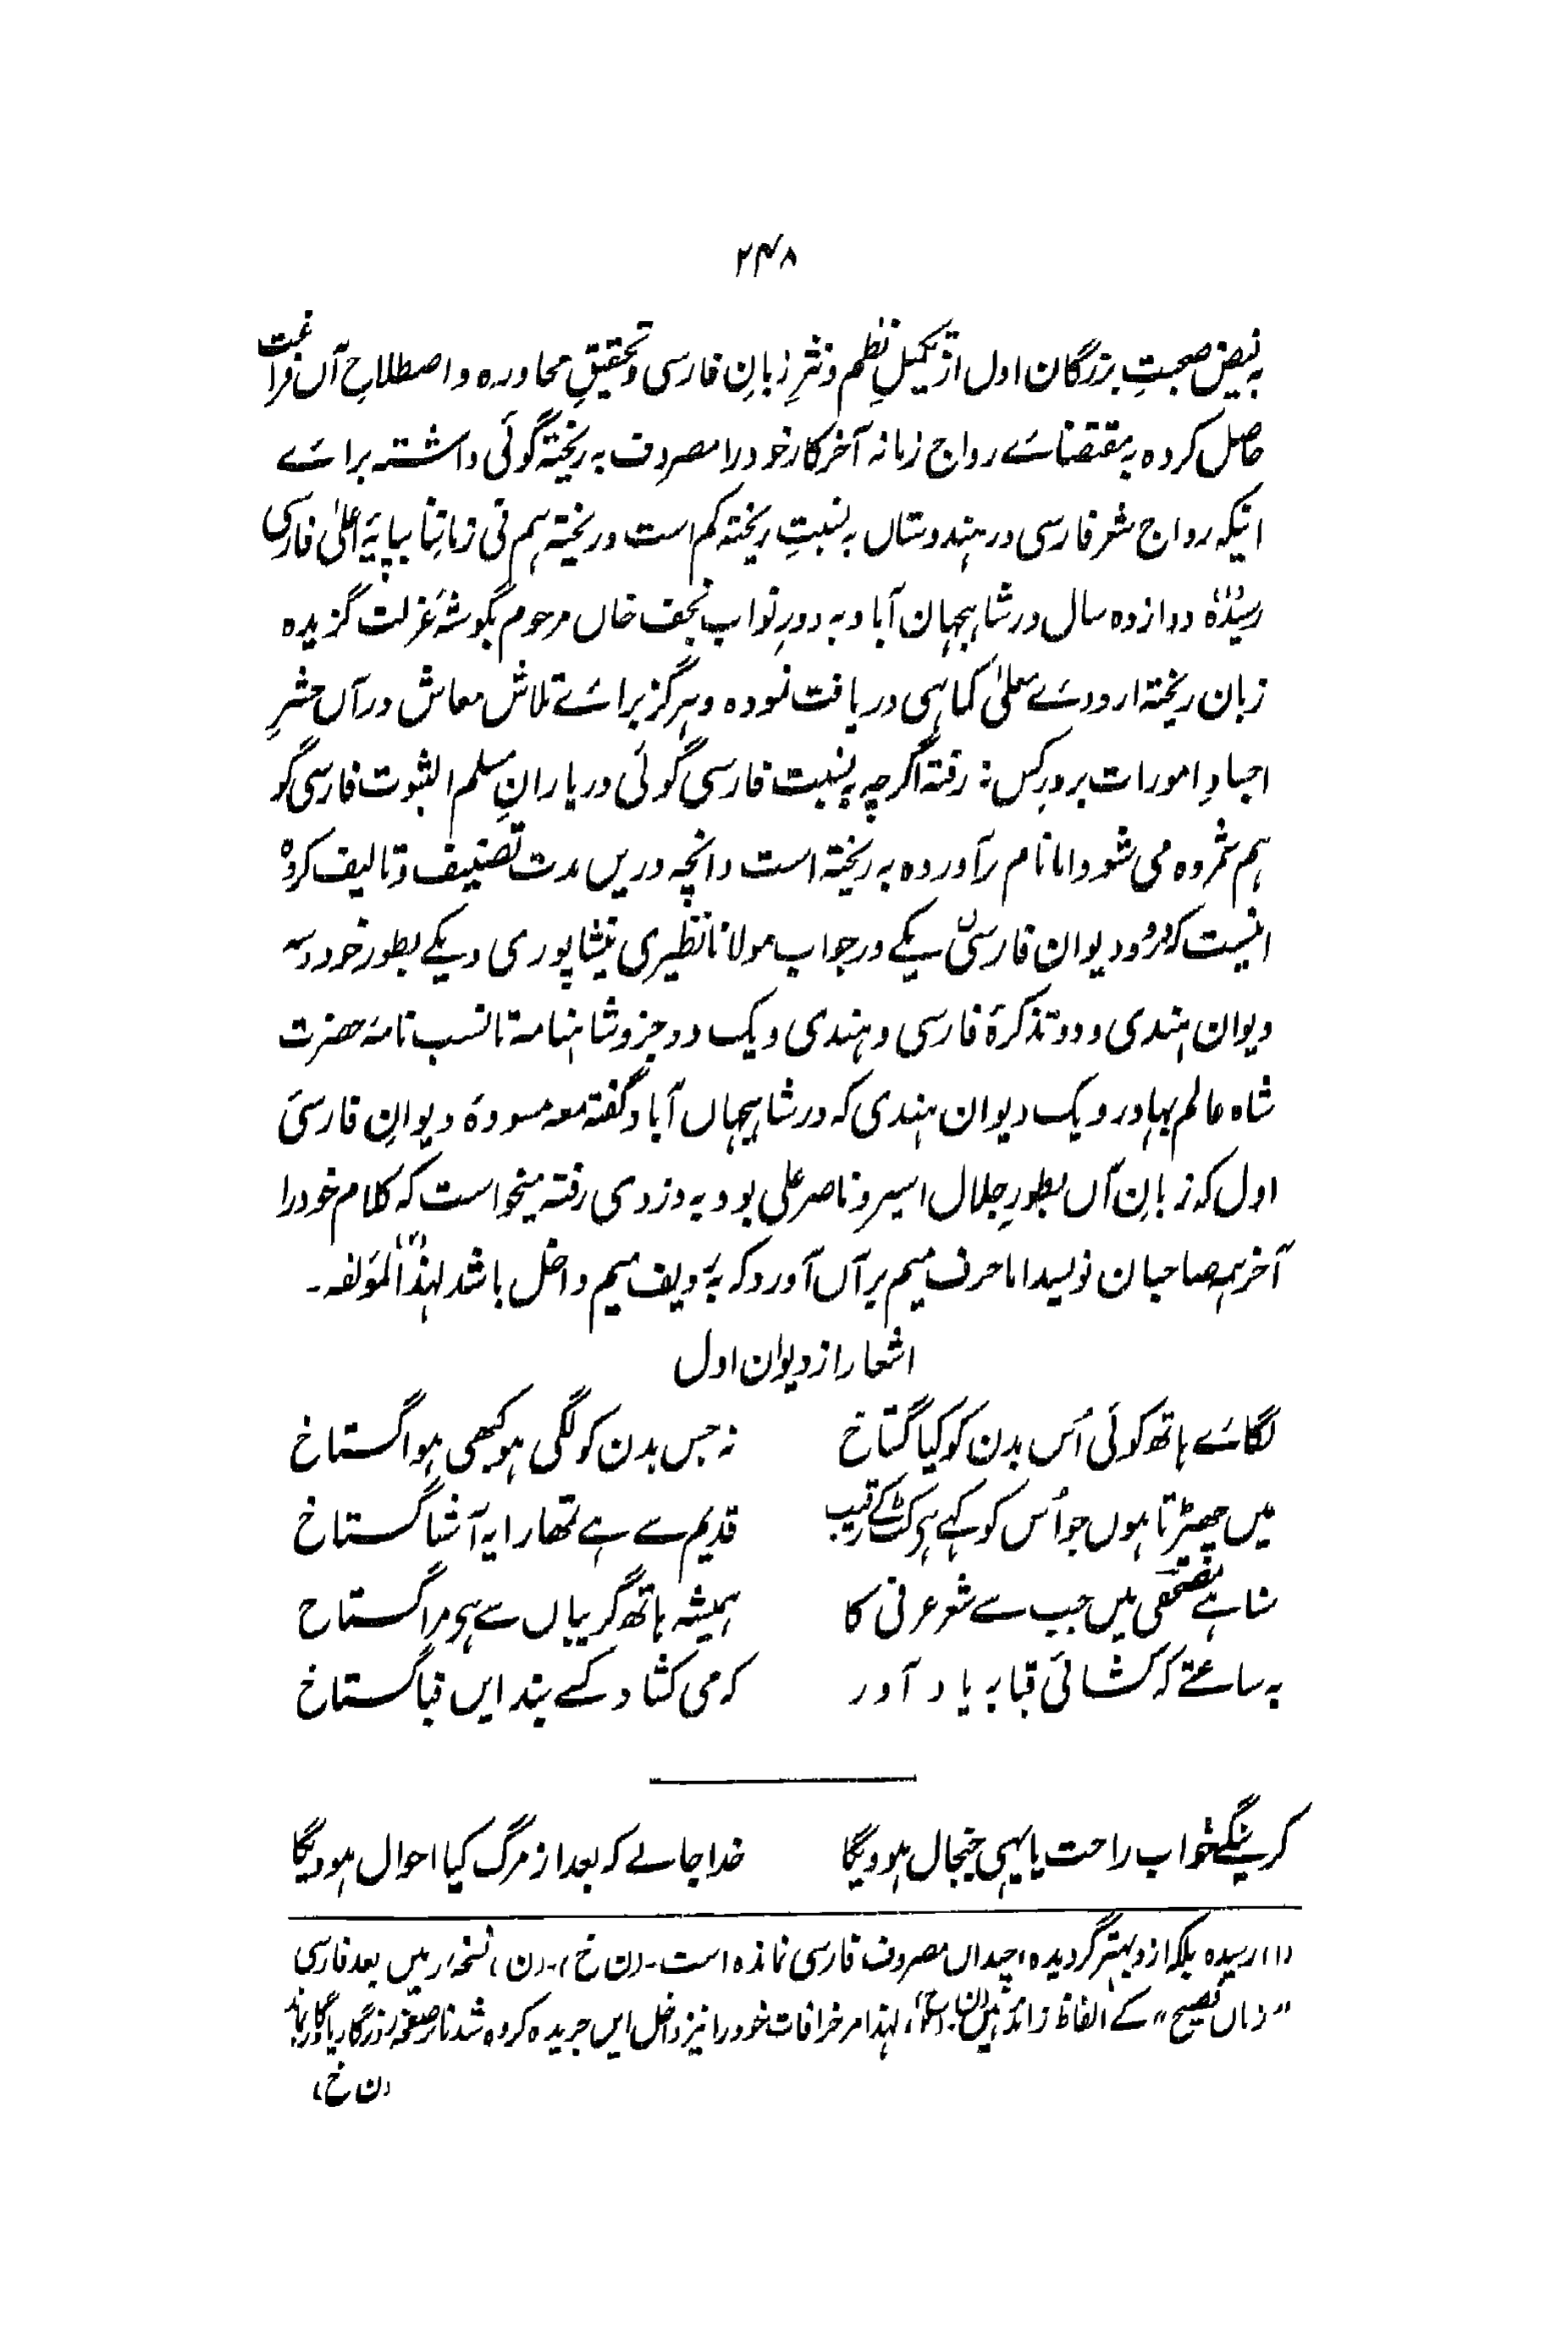 ۲۴۸
بہ فیض صحبتِ بزرگان اول از تکمیلِ نظم و نثرِ زبانِ فارسی و تحقیقِ محاورہ و اصطلاحِ آں فراغت
حاصل کردہ بہ مقتضائے رواج زمانہ آخر کار خود را مصروف بہ ریختہ گوئی داشتہ برائے
اینکہ رواج شعر فارسی در ہندوستاں بہ نسبتِ ریختہ کم است و ریختہ ہم فی زماننا بپایۂ اعلیٰ فارسی
رسیدہ دوازدہ سال در شاہجہان آباد بہ دورِ نواب نجف خاں مرحوم بگوشۂ عزلت گزیدہ
زبان ریختہ اردوئے معلیٰ کماہی دریافت نمودہ و ہرگز برائے تلاش معاش در آں حشرِ
اجسادِ اموات بر در کس نہ رفتہ اگرچہ بہ نسبت فارسی گوئی در یارانِ مسلم الثبوت فارسی گو
ہم شمردہ می شود اما نام برآوردہ بہ ریختہ است و آنچہ دریں مدت تصنیف و تالیف کردہ
اینست کہ دو دیوان فارسی یکے در جواب مولانا نظیری نیشاپوری و یکے بطور خود و سہ
دیوان ہندی و دو تذکرۂ فارسی و ہندی و یک دو جزو شاہنامہ تا نسب نامۂ حضرت
شاہ عالم بہادر و یک دیوان ہندی کہ در شاہجہاں آباد گفتہ معہ مسودۂ دیوانِ فارسیٔ
اول کہ زبانِ آں بطورِ جلال اسیر و ناصر علی بود بہ دزدی رفتہ میخواست کہ کلام خود را
آخر ہمہ صاحبان نویسد اما حرف میم بر آں آورد کہ بہ ردیف میم داخل باشد لہٰذا لمؤلفہ۔
اشعار از دیوان اول
لگائے ہاتھ کوئی اُس بدن کو کیا گستاخ نہ جس بدن کو لگی ہو کبھی ہوا گستاخ
میں چھیڑتا ہوں جو اُس کو کہے ہے کٹ کے رقیب قدیم سے ہے تمھارا یہ آشنا گستاخ
سنا ہے مصحفی میں جب سے شعر عرفی کا ہمیشہ ہاتھ گریباں سے ہے مرا گستاخ
بہ ساعتے کہ کشائی قبا بہ یاد آور کہ می کشاد کسے بند ایں قبا گستاخ
کرینگے خواب راحت یا یہی جنجال ہوویگا خدا جانے کہ بعد از مرگ کیا احوال ہوویگا
(۱) رسیدہ بلکہ ازو بہتر گردیدہ، چنداں مصروف فارسی نماندہ است۔ (ن خ)۔ (ن) نسخہ ر میں بعد فارسی
"زبان فصیح" کے الفاظ زائد ہیں لہذا مر خرافات خود را نیز داخل ایں جریدہ کردہ شد تا بر صفحہ روزگار یادگار بماند
(ن خ)